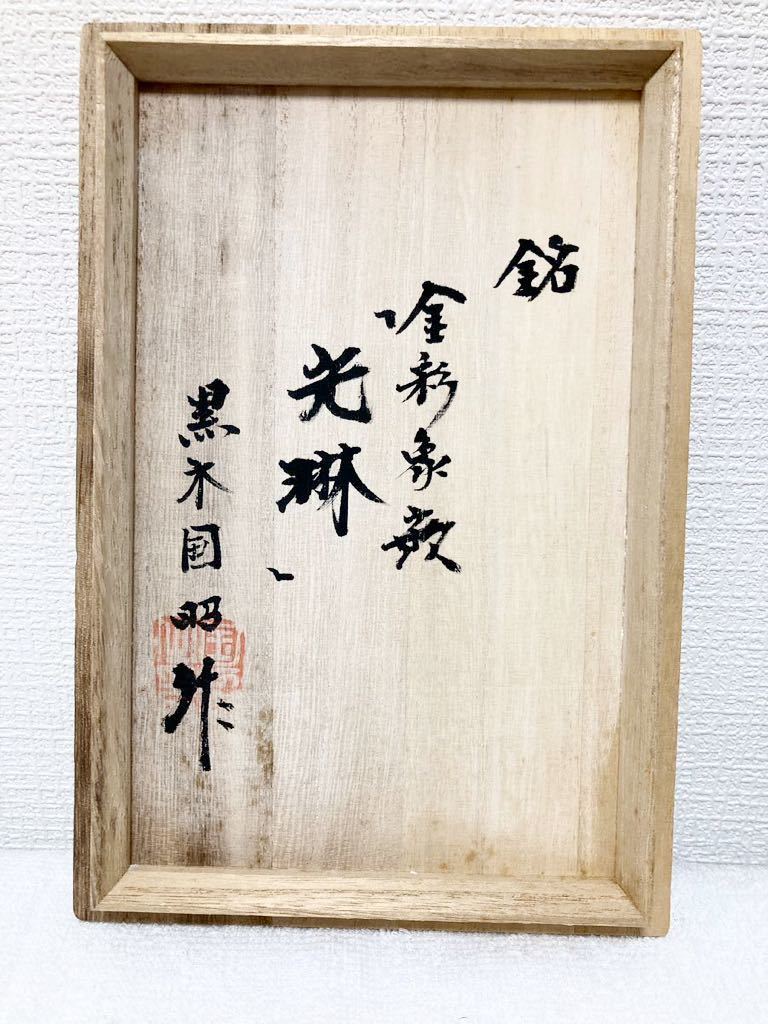 銘
「金彩象嵌
光琳」
黒木国昭作